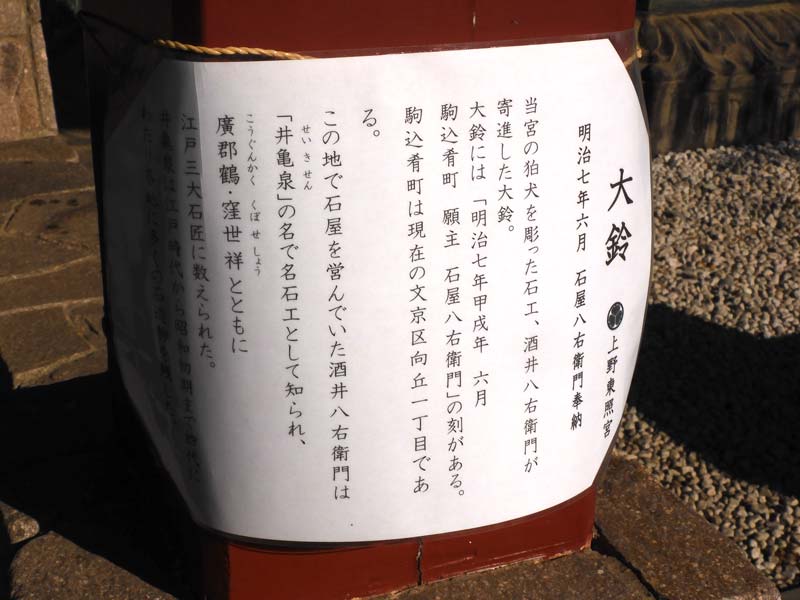 大鈴
上野東照宮
明治七年六月 石屋八右衛門奉納
当宮の狛犬を彫った石工、酒井八右衛門が
寄進した大鈴。
大鈴には「明治七年甲戌年 六月
駒込肴町 願主 石屋八右衛門」の刻がある。
駒込肴町は現在の文京区向丘一丁目であ
る。
この地で石屋を営んでいた酒井八右衛門は
「井亀泉」の名で名石工として知られ、
せいきせん
廣郡鶴・窪世祥とともに
こうぐんかく くぼせしょう
江戸三大石匠に数えられた。
井亀泉は江戸時代から昭和初期まで四代